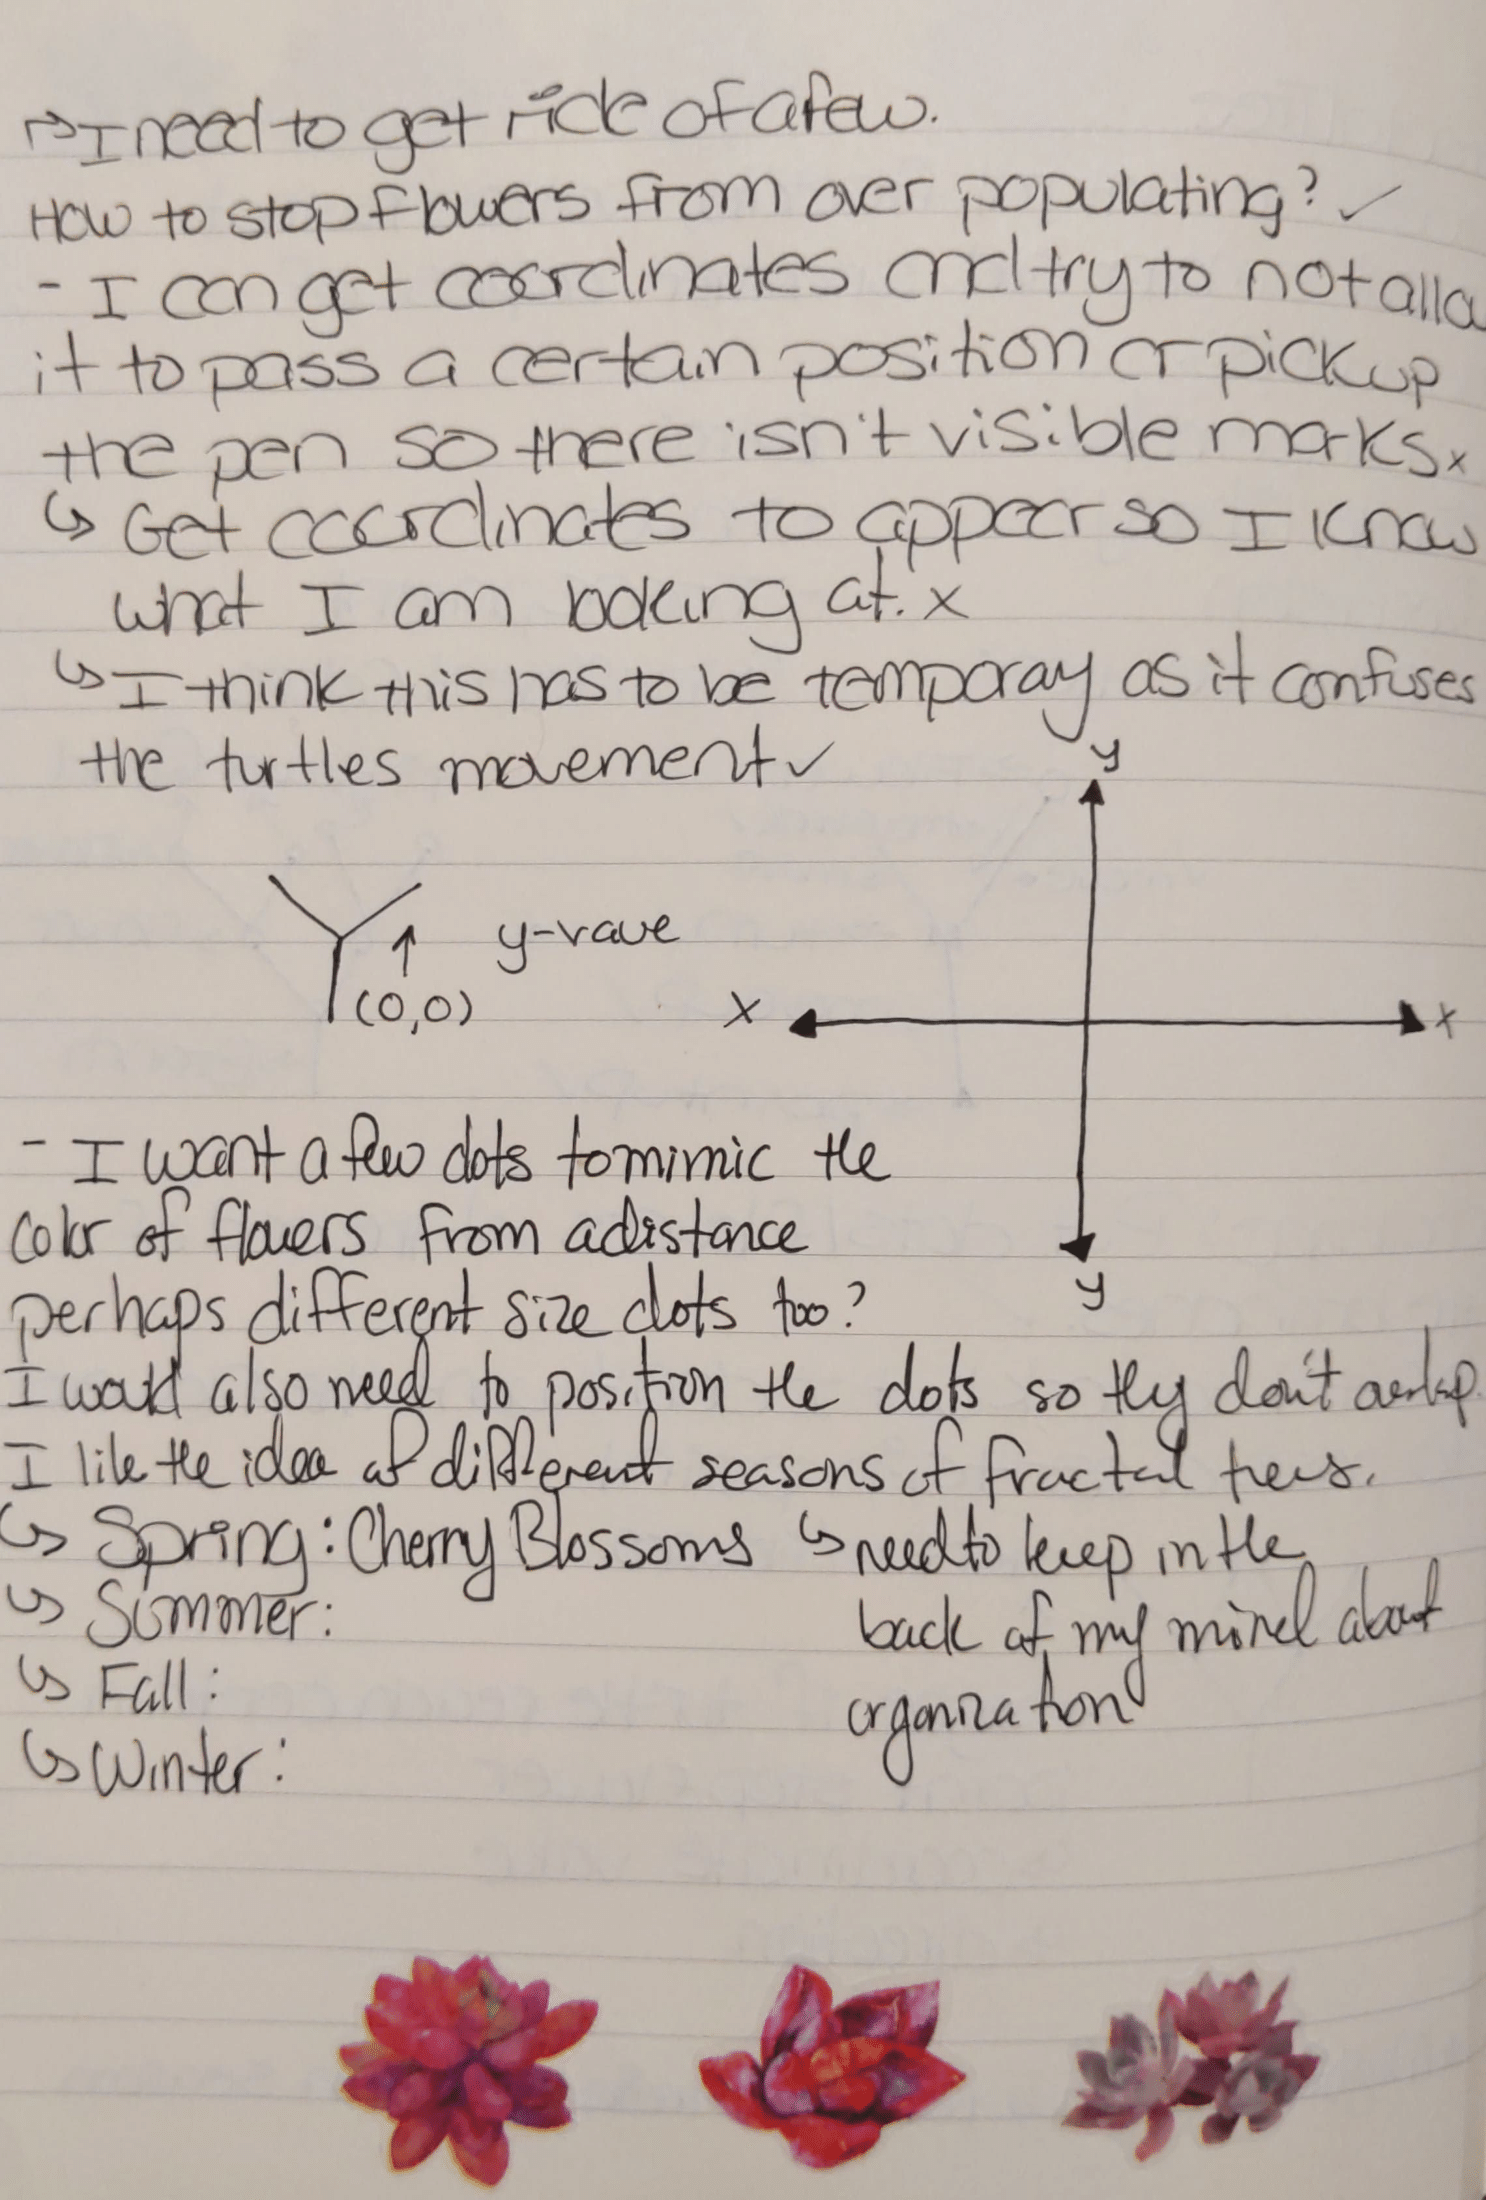 ↳ I need to get ride of a few.
How to stop flowers from over populating? ✓
- I can get coordinates and try to not allo
it to pass a certain position or pick up
the pen so there isn't visible marks. x
↳ Get coordinates to appear so I know
what I am looking at. x
↳ I think this has to be temporay as it confuses
the turtles movement ✓
y
(0,0)
x
x
y
- I want a few dots to mimic the
color of flowers from a distance
perhaps different size dots too?
I would also need to position the dots so they don't overlap.
I like the idea of different seasons of fractal trees.
↳ Spring: Cherry Blossoms
↳ Summer:
↳ Fall:
↳ Winter:
↳ need to keep in the
back of my mind about
organization